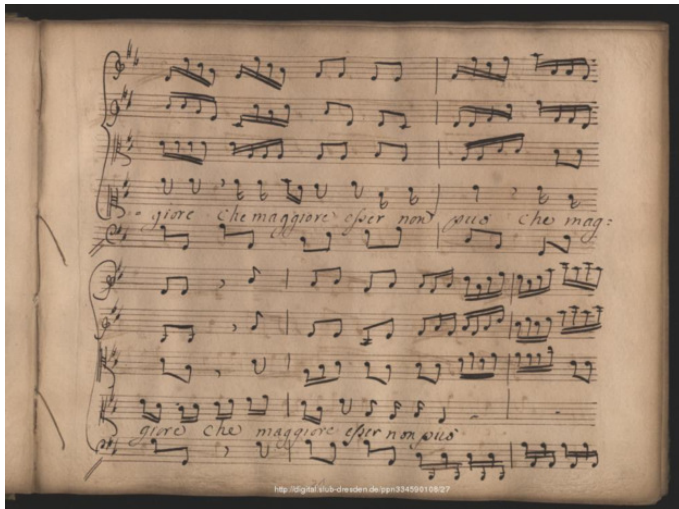 = giore che maggiore esser non può che mag:
giore che maggiore esser non può
http://digital.slub-dresden.de/ppn334590108/27